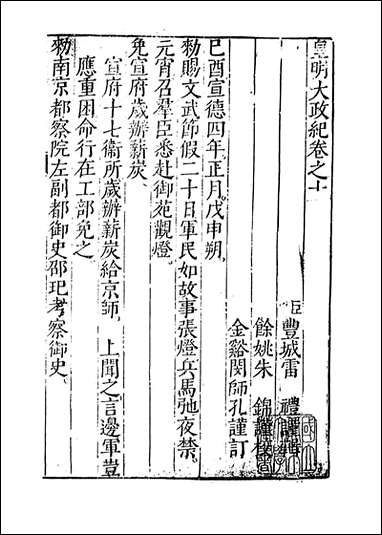 皇明大政紀卷之十
臣豐城雷 禮謹輯
餘姚朱 錦謹校
金谿閔師孔謹訂
己酉宣德四年正月戊申朔
勑賜文武節假二十日軍民如故事張燈兵馬弛夜禁
元宵召羣臣悉赴御苑觀燈
免宣府歲辦薪炭
宣府十七衞所歲辦薪炭給京師 上聞之言邊軍豈
應重困命行在工部免之
勑南京都察院左副都御史邵玘考察御史